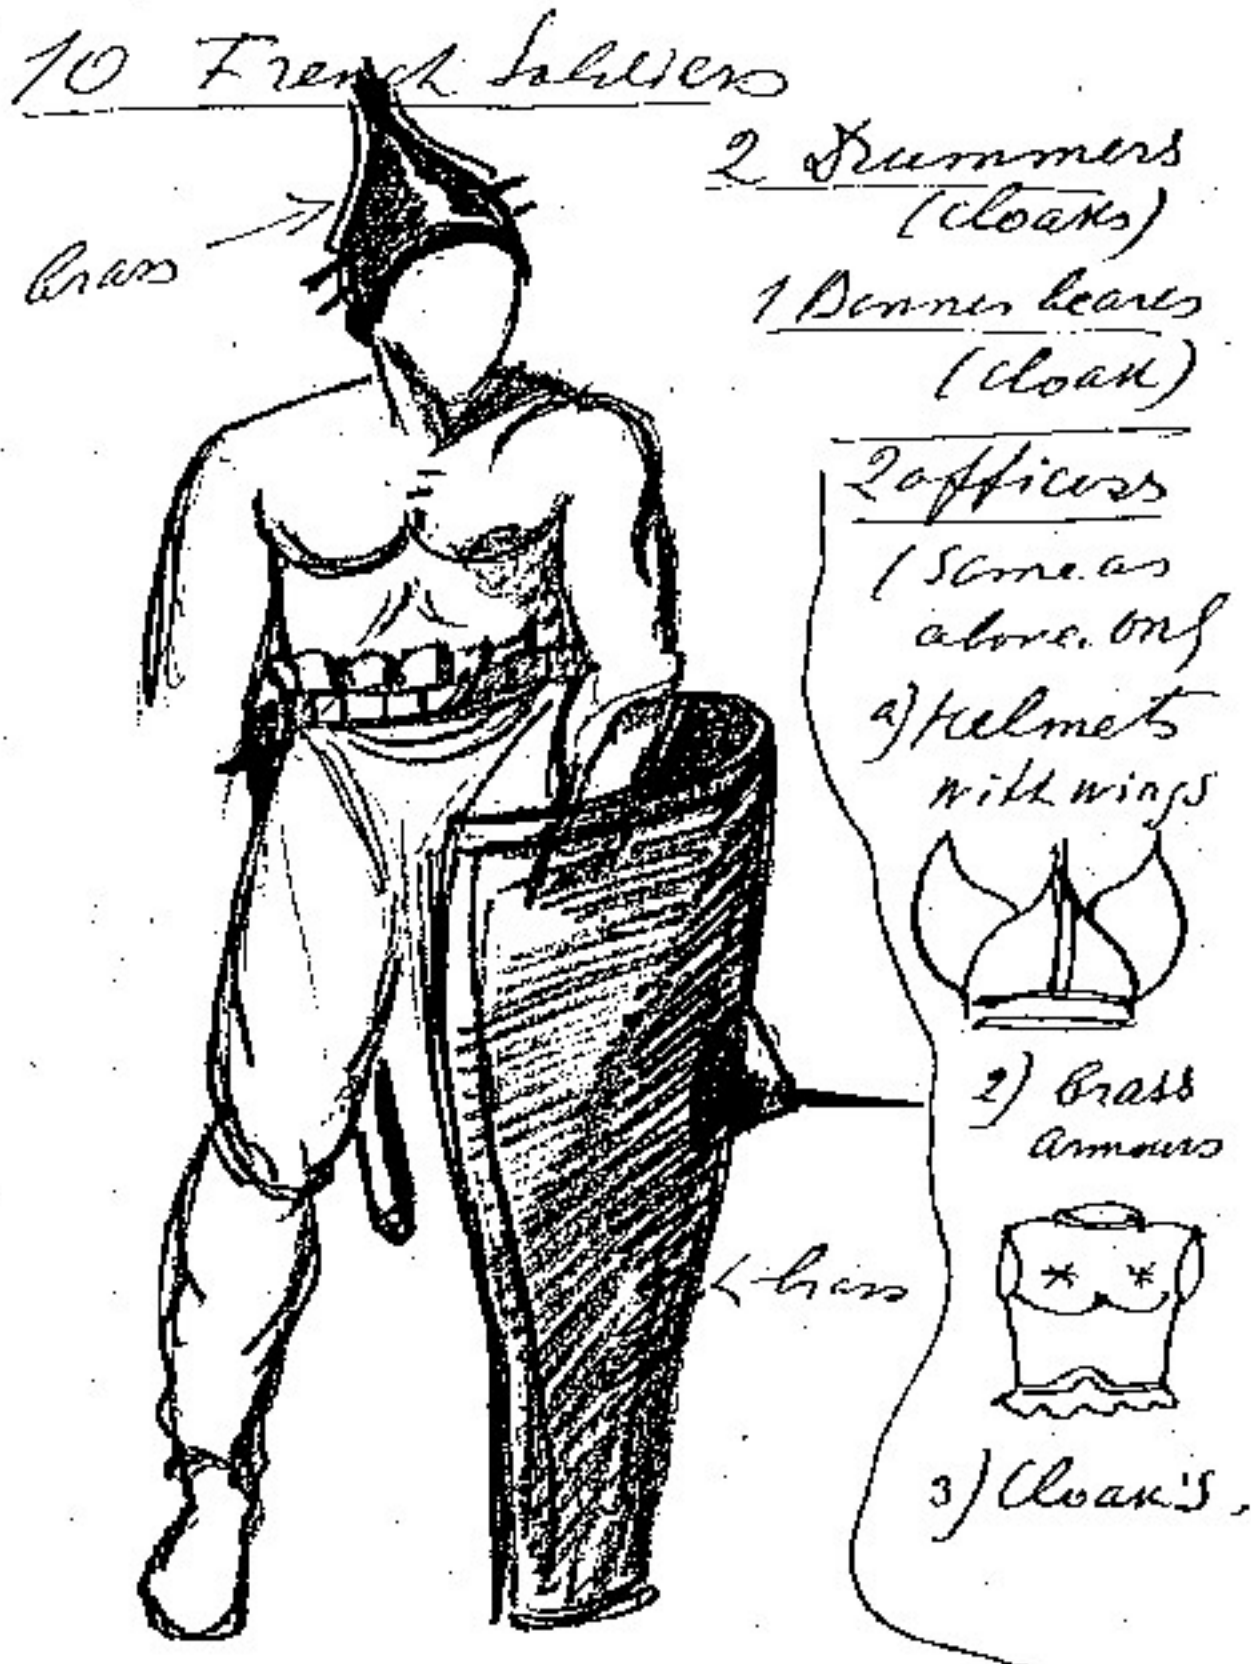 10 French Soldiers
2 Drummers
(Cloaks)
brass
1 Banner bearer
(Cloak)
2 officers
(Same as
above. only
a) Helmets
with wings
2) Brass
Armours
brass
3) Cloak's.